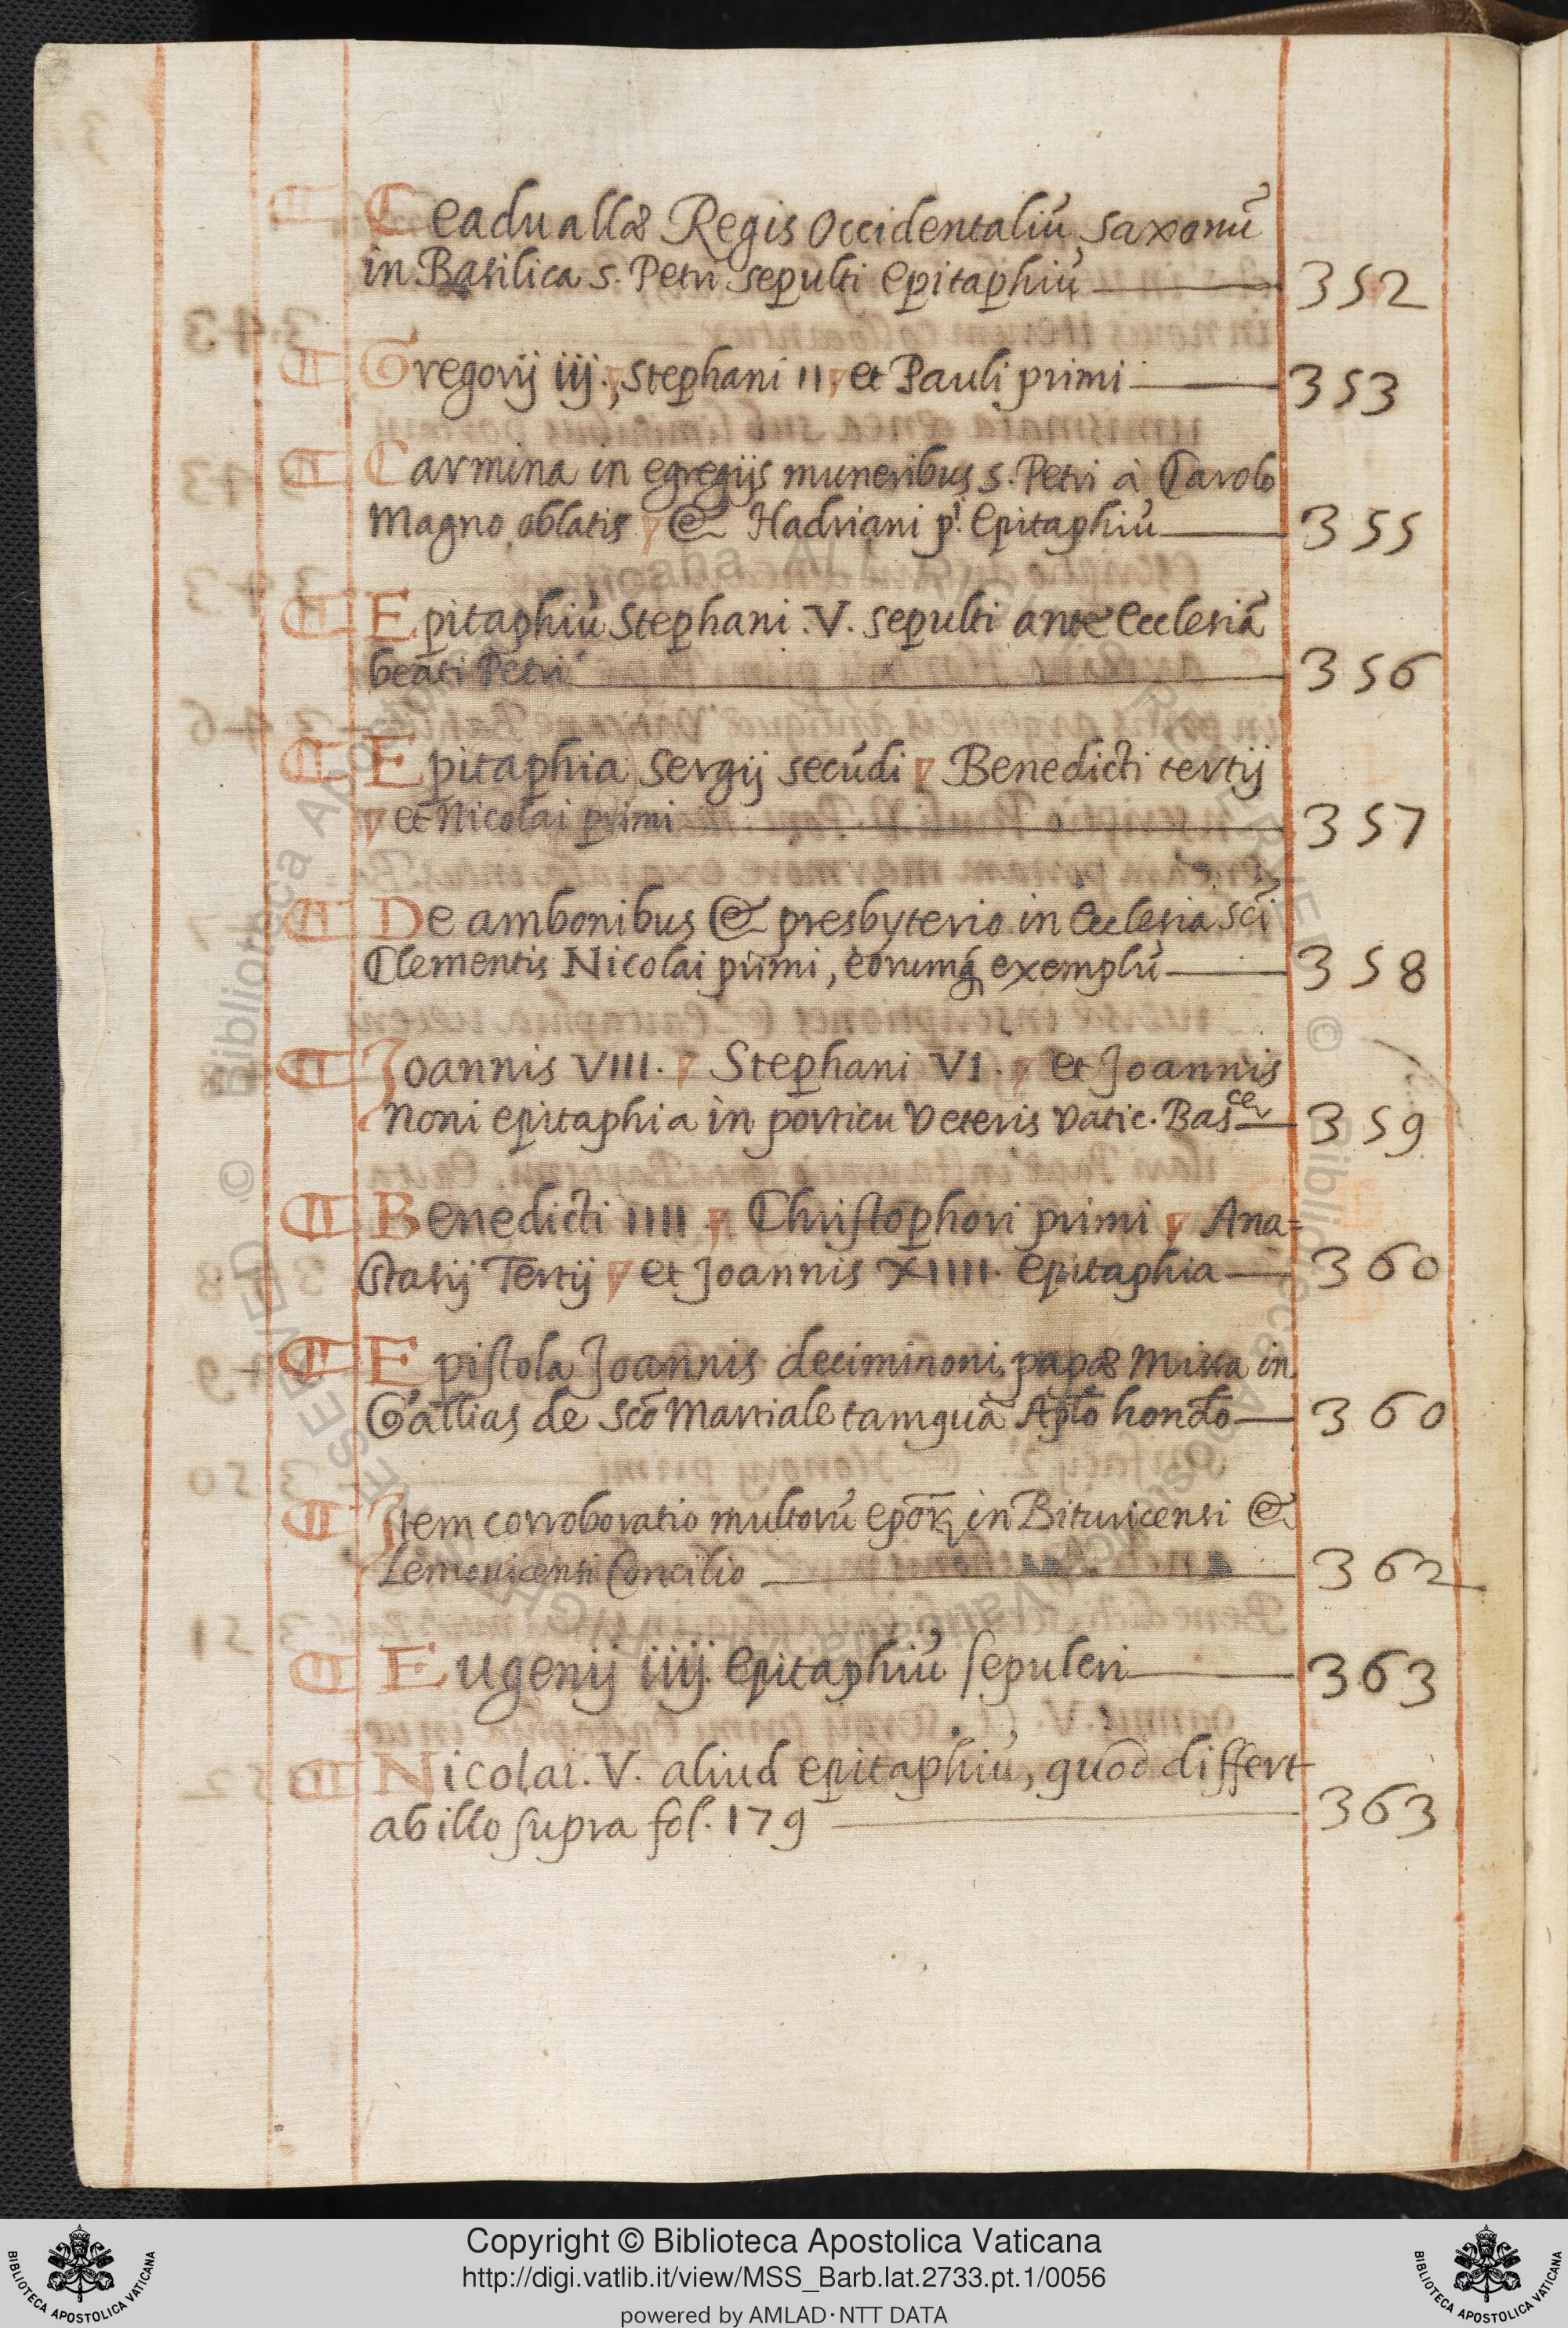 ¶ Ceaduallæ Regis Occidentaliũ Saxonũ
in Basilica S. Petri sepulti epitaphiũ — 352
¶ Gregorij iij., Stephani II et Pauli primi — 353
¶ Carmina in egregijs muneribus S. Petri à Carolo
Magno oblatis & Hadriani p.ⁱ epitaphiũ — 355
¶ Epitaphiũ Stephani. V. sepulti ante ecclesiã
beati Petri — 356
¶ Epitaphia Sergij secũdi Benedicti tertij
et Nicolai primi — 357
¶ De ambonibus & presbyterio in ecclesia Scĩ
Clementis Nicolai primi, eorumq; exemplũ — 358
¶ Joannis VIII. Stephani VI. et Joannis
noni epitaphia in porticu veteris Vatic. Bas^cę — 359
¶ Benedicti IIII Christophori primi Ana=
stasij Tertij et Joannis XIIII. epitaphia — 360
¶ Epistola Joannis deciminoni papæ missa in
Gallias de Scõ Martiale tamquã Aplõ honõdo — 360
¶ Item corroboratio multorũ epõꝝ in Bituricensi &
Lemouicensi Concilio — 362
¶ Eugenij iiij. epitaphiũ sepulcri — 363
¶ Nicolai. V. aliud epitaphiũ, quod differt
ab illo supra fol. 179 — 363
Copyright © Biblioteca Apostolica Vaticana
http://digi.vatlib.it/view/MSS_Barb.lat.2733.pt.1/0056
powered by AMLAD·NTT DATA
BIBLIOTECA APOSTOLICA VATICANA
BIBLIOTECA APOSTOLICA VATICANA